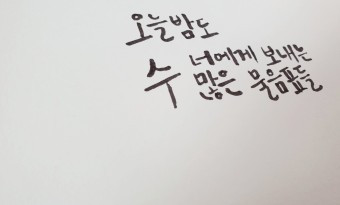 오늘밤도
너에게 보내는
수많은 물음표들